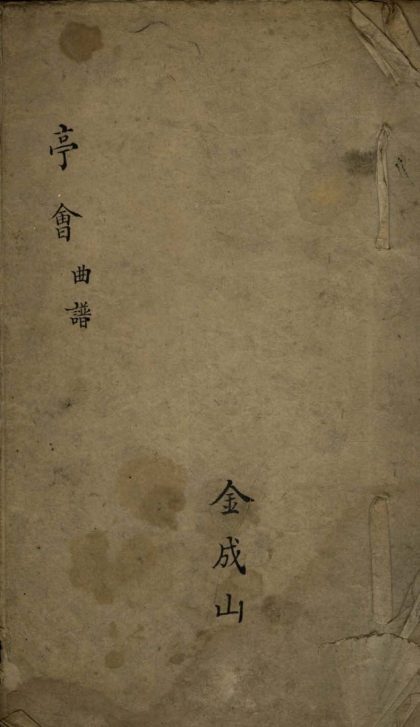 亭會曲譜
金成山